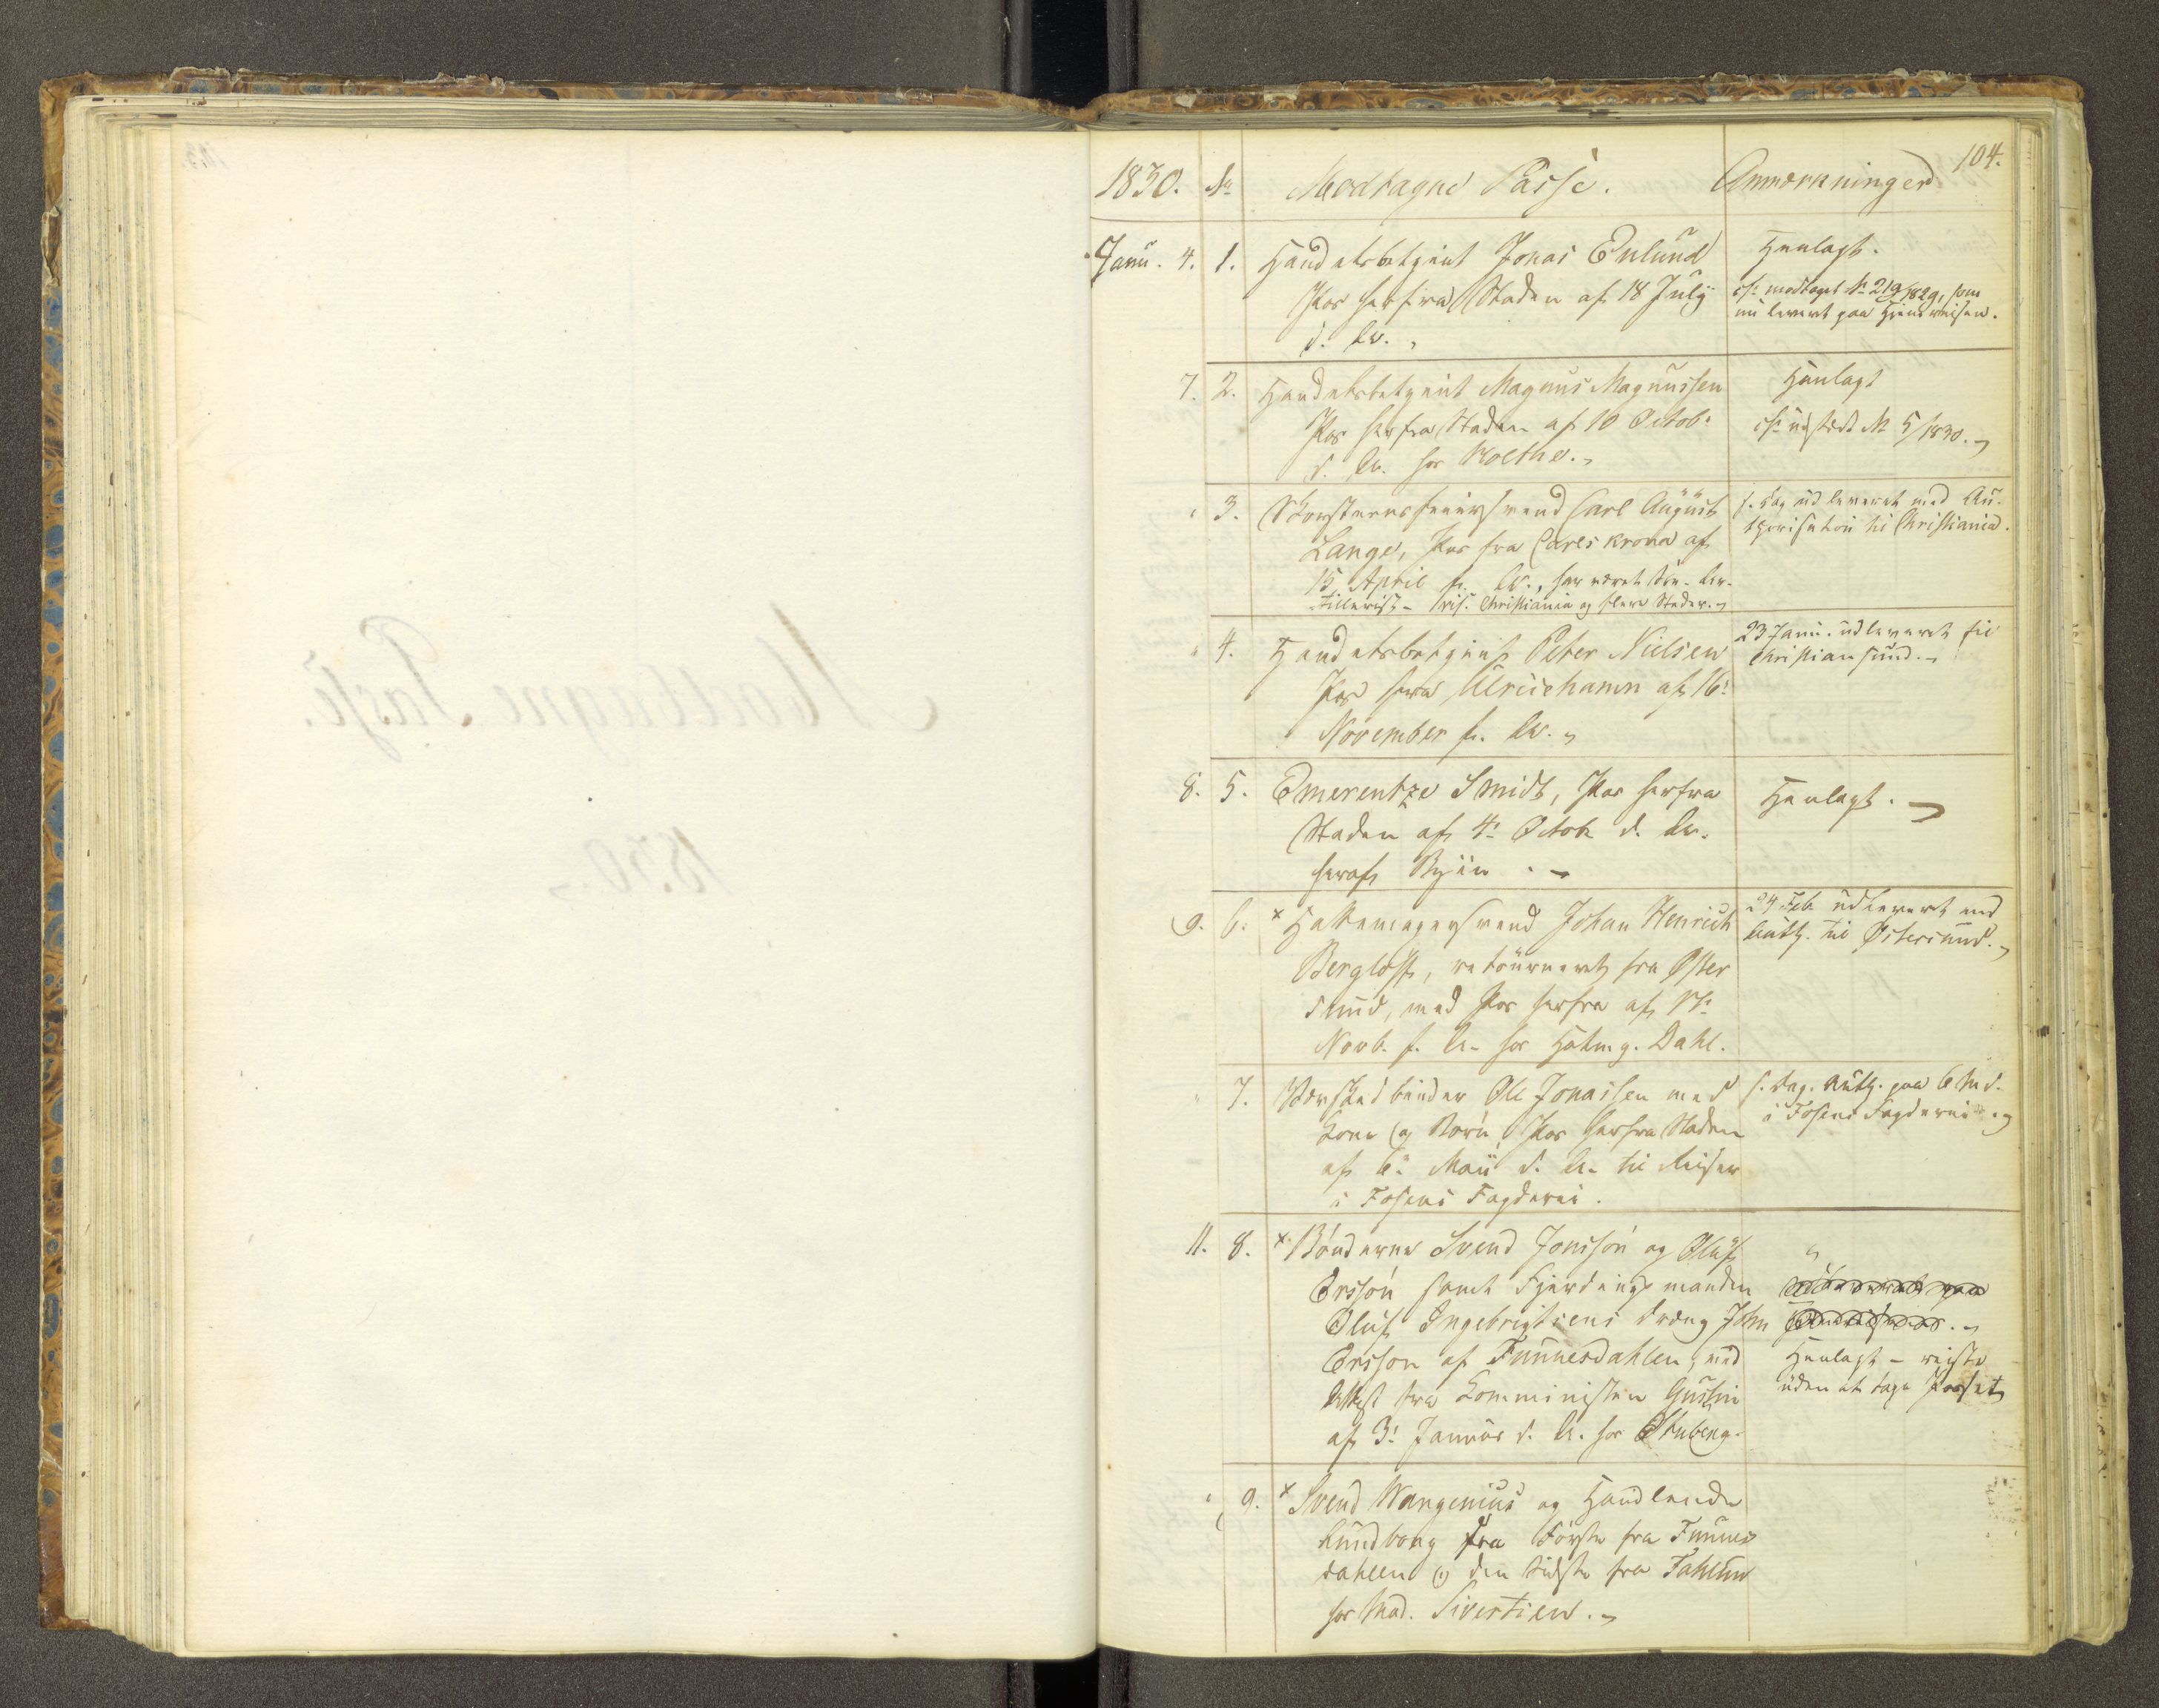 104.
1830. No Modtagne Passe. Anmærkninger
Janu. 4. 1. Handelsbetjent Jonas Enlund
Pas herfra Staden af 18 July
d. Av.
Henlagt.
cfr. modtagt No 219/1829, som
nu leveret paa Hjemreisen.
7. 2. Handelsbetjent Magnus Magnussen
Pas herfra Staden af 10 Octob.
d. Av. hos Koethe.
Henlagt
cfr. udstedt No 5/1830.
" 3. Skorsteensfeiersvend Carl August
Lange, Pas fra Carlskrona af
15. April f. Av., har været
Christiania og flere Steder.
s. Dag udleveret med Au-
thorisation til Christiania.
" 4. Handelsbetjent Peter Nielsen
Pas fra Ulricehamn af 16.
November f. Av.
23 Janu. udleveret til
Christiansund.
8. 5. Emerentze Smidt, Pas herfra
Staden af 4. Octob. d. Av.
heraf Byen.
Henlagt.
9. 6. x Hattemagersvend Johan Henrich
Bergloff, retourneret fra Øster
sund, med Pas herfra af
Novb. f. A. hos Hatmg. Dahl.
24 Feb. udleveret med
Auth. til Østersund.
" 7. Ole Jonassen med
Kone og Børn, Pas herfra Staden
af 6. Maii d. A. til Reiser
i Fosens Fogderi.
s. Dag. Auth. paa 6 Md.
i Fosens Fogderie
11. 8. x Bønderne Svend Jonsson og Oluf
Ersson samt Fjerdingsmanden
Oluf Ingebrigtsens Dreng John
Ersson af Funnesdahlen, med
Attest fra Komministern
af 3. Januar d. A. hos Stuberg.
Henlagt – reiste
uden at tage Passet
" 9. x Svend Wangenius og Handlende
Lundborg fra Første fra Funnes
dahlen og den sidste fra Fahlun
hos Mad. Sivertsen.
Modtagne Passe.
1830.